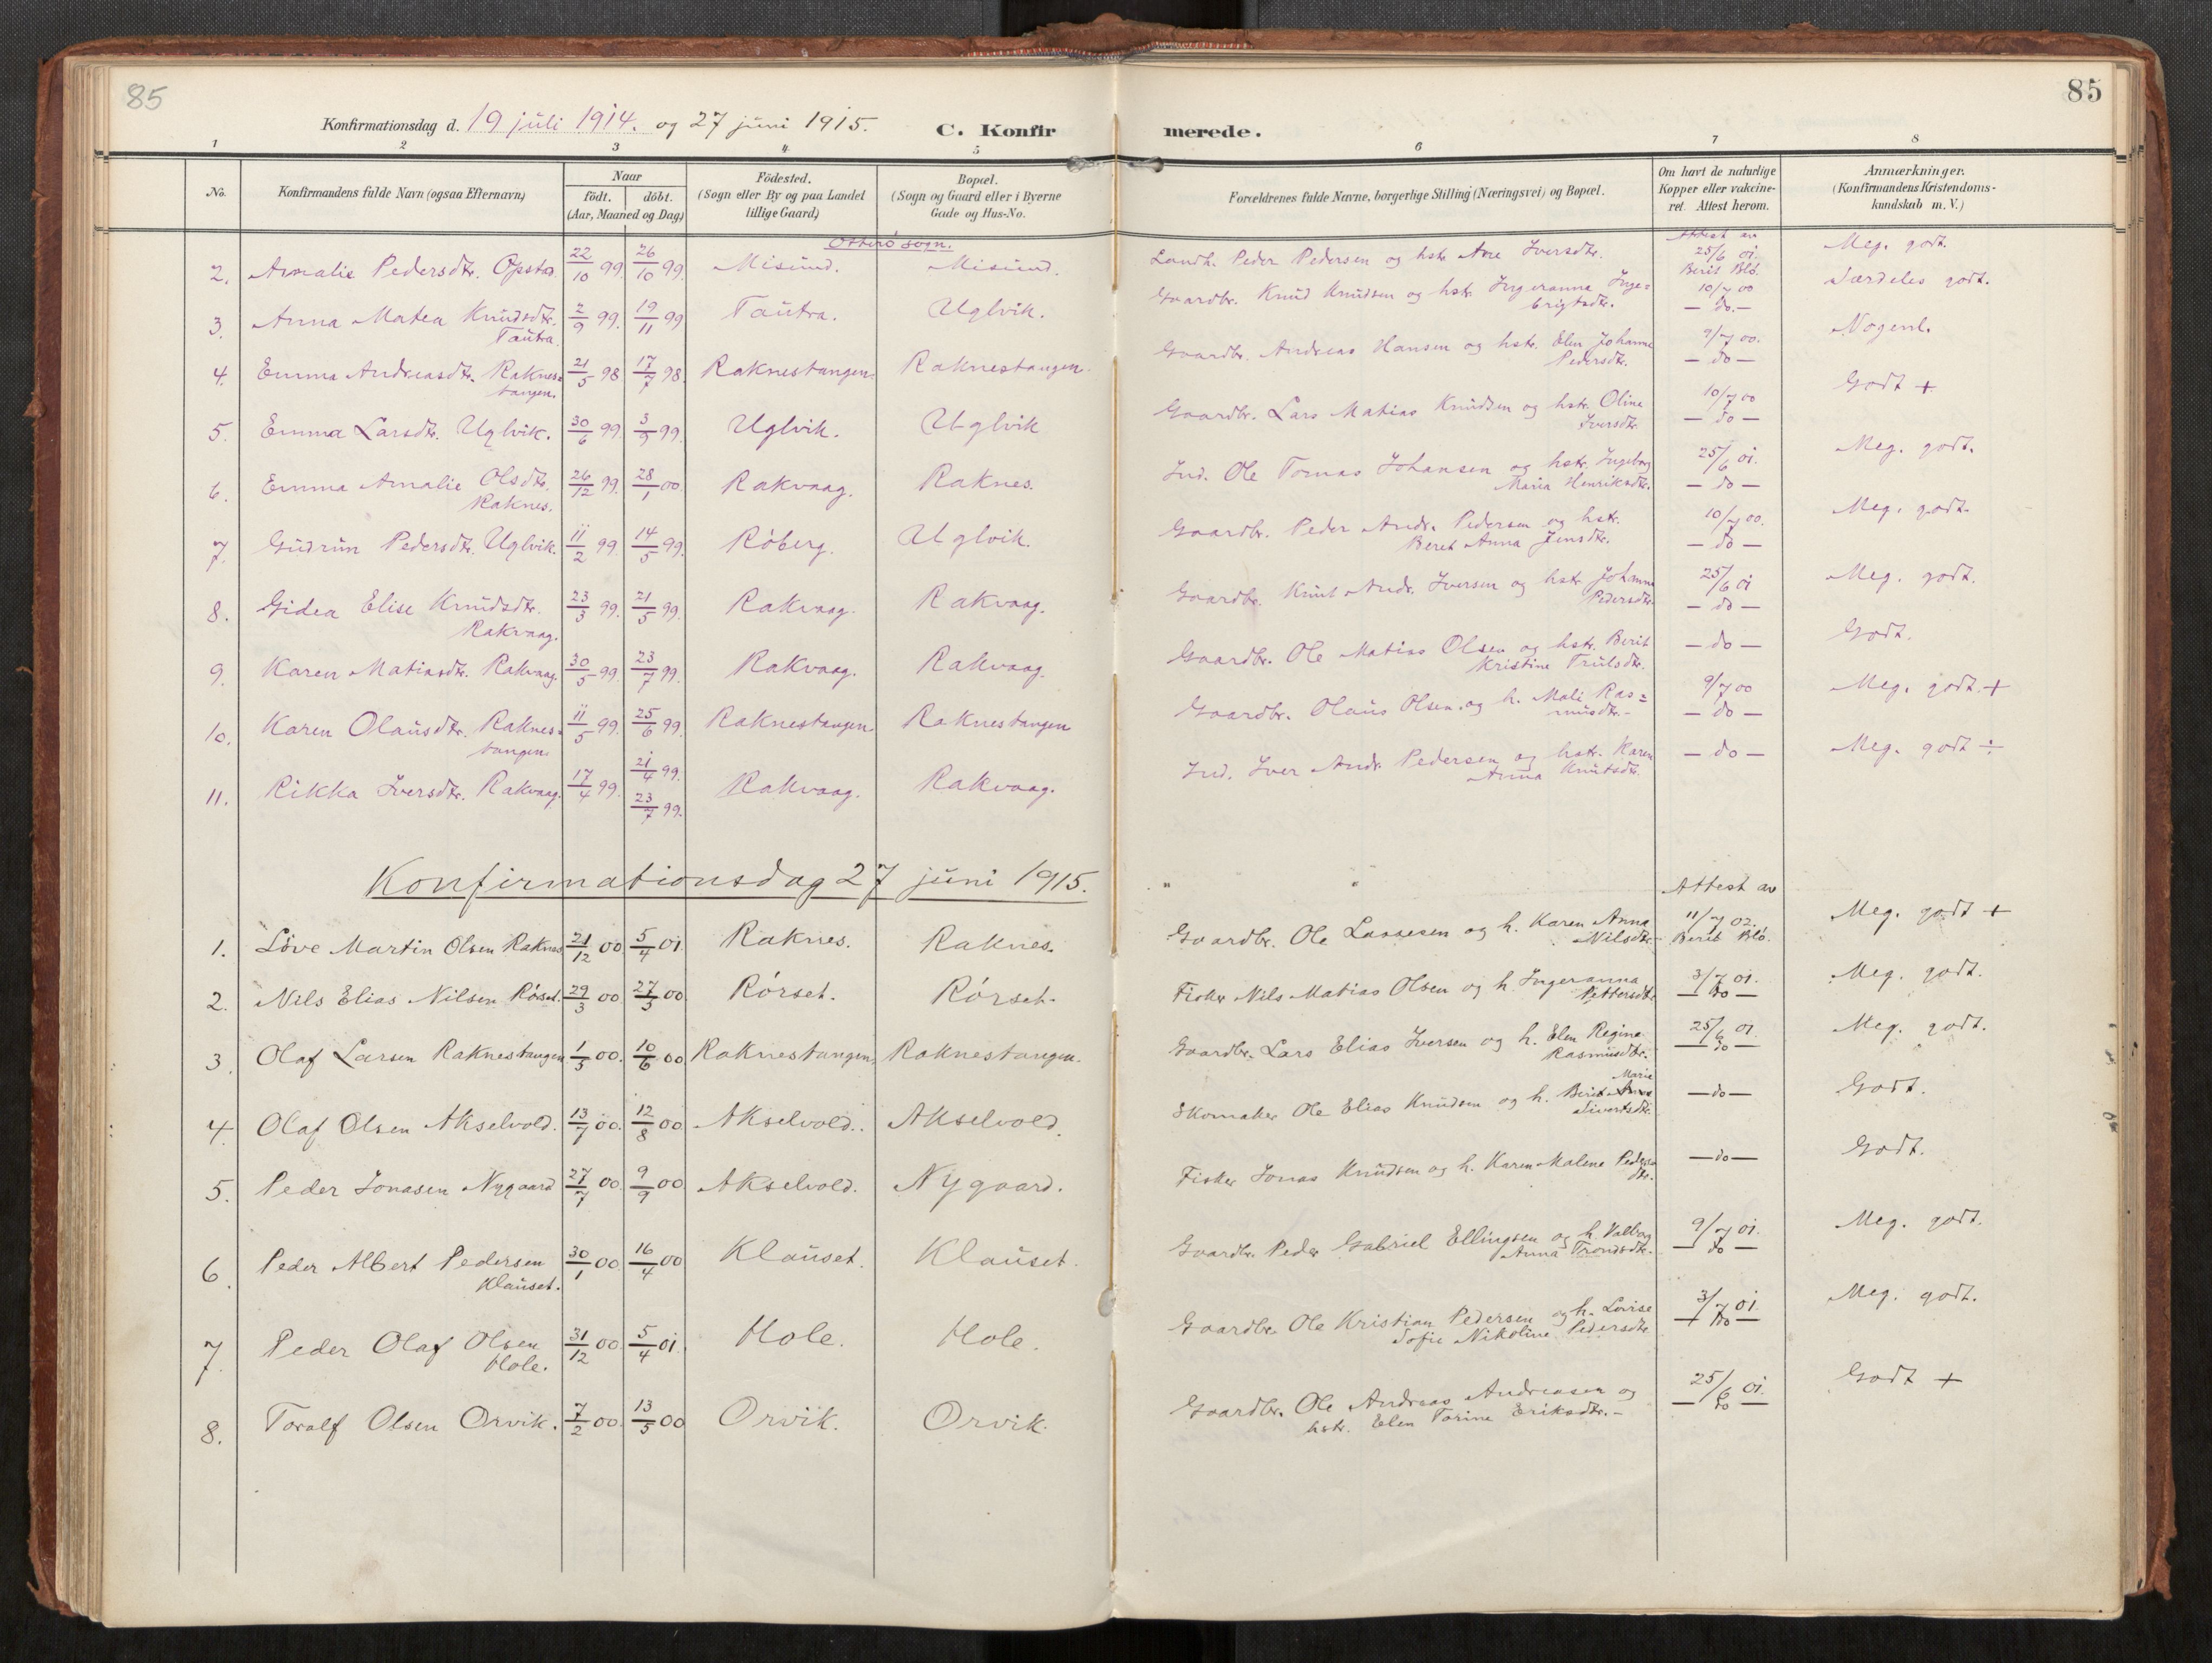 85
85
Konfirmationsdag d. 19 juli 1914. og 27 juni 1915.
C. Konfirmerede.
1 2 3 4 5 6 7 8
No.
Konfirmandens fulde Navn (ogsaa Efternavn)
Naar
født. døbt.
(Aar, Maaned og Dag)
Fødested.
(Sogn eller By og paa Landet
tillige Gaard)
Bopæl.
(Sogn og Gaard eller i Byerne
Gade og Hus-No.
Forældrenes fulde Navne, borgerlige Stilling (Næringsvei) og Bopæl.
Om havt de naturlige
Kopper eller vakcine-
ret. Attest herom.
Anmærkninger.
(Konfirmandens Kristendoms-
kundskab m. V.)
Otterø sogn.
Attest av
2. Amalie Pedersdtr. Opstad 22/10 99. 26/10 99. Misund. Misund. Landh. Peder Pedersen og hstr. Ane Iversdtr. 25/6 01. Meg. godt.
Berit Blø.
3. Anna Matea Knudsdtr. 2/9 99. 19/11 99 Tautra. Uglvik. Gaardbr. Knud Knudsen og hstr. Ingeranna Inge= 10/7 00 Særdeles godt.
Tautra. brigtsdtr. — do. —
4. Emma Andreasdtr. Raknes= 21/5 98 17/7 98. Raknestangen. Raknestangen. Gaardbr. Andreas Hansen og hstr. Elen Johanna 9/7 00. Nogenl.
tangen. Pedersdtr. — do —
5. Emma Larsdtr. Uglvik. 30/6 99. 3/9 99. Uglvik. Uglvik Gaardbr. Lars Matias Knudsen og hstr. Oline 10/7 00 Godt +
Iversdtr. — do —
6. Emma Amalie Olsdtr. 26/12 99. 28/1 00. Rakvaag. Raknes. Ind. Ole Tomas Johansen og hstr. Ingeborg 25/6 01. Meg. godt.
Raknes. Maria Henriksdtr. — do —
7. Gudrun Pedersdtr. Uglvik. 11/2 99. 14/5 99. Røberg. Uglvik. Gaardbr. Peder Andr. Pedersen og hstr. 10/7 00. Meg. godt.
Beret Anna Jensdtr. — do —
8. Gidea Elise Knudsdtr. 23/3 99. 21/5 99. Rakvaag. Rakvaag. Gaardbr. Knut Andr. Iversen og hstr. Johanna 25/6 01 Meg. godt.
Rakvaag. Pedersdtr. — do —
9. Karen Matiasdtr. Rakvaag. 30/5 99. 23/7 99. Rakvaag. Rakvaag. Gaardbr. Ole Matias Olsen og hstr. Berit — do — Godt.
Kristine Trulsdtr.
10. Karen Olausdtr. Raknes= 11/5 99. 25/6 99. Raknestangen Raknestangen Gaardbr. Olaus Olsen og h. Mali Ras= 9/7 00 Meg. godt. +
tangen. musdtr. — do —
11. Rikka Iversdtr. Rakvaag. 17/4 99. 21/4 99. Rakvaag. Rakvaag. Ind. Iver Andr. Pedersen og hstr. Karen — do — Meg. godt ÷
23/7 99. Anna Knutsdtr.
Konfirmationsdag 27 juni 1915.
Attest av
1. Løve Martin Olsen Raknes 21/12 00. 5/4 01. Raknes. Raknes. Gaardbr. Ole Lassesen og h. Karen Anna 11/7 02. Meg. godt +
Nilsdtr. Berit Blø.
2. Nils Elias Nilsen Rørset. 29/3 00. 27/5 00. Rørset. Rørset. Fisker Nils Matias Olsen og h. Ingeranna 3/7 01. Meg. godt.
Pettersdtr. — do —
3. Olaf Larsen Raknestangen 1/5 00. 10/6 00 Raknestangen. Raknestangen. Gaardbr. Lars Elias Iversen og h. Elen Regine 25/6 01. Meg. godt.
Rasmusdtr. — do —
Marie
4. Olaf Olsen Akselvold. 13/7 00. 12/8 00 Akselvold. Akselvold. Skomaker Ole Elias Knudsen og h. Berit — do — Godt.
Sivertsdtr.
5. Peder Jonasen Nygaard 27/7 00. 9/9 00 Akselvold. Nygaard. Fisker Jonas Knudsen og h. Karen Malene Peders — do — Godt.
dtr.
6. Peder Albert Pedersen 30/1 00. 16/4 00 Klauset. Klauset. Gaardbr. Peder Gabriel Ellingsen og h. Valborg 9/7 01. Meg. godt.
Klauset. Anna Trondsdtr. — do —
7. Peder Olaf Olsen 31/12 00 5/4 01. Hole. Hole. Gaardbr. Ole Kristian Pedersen og h. Lovise 3/7 01. Meg. godt.
Hole. Sofie Nikoline Pedersdtr. — do —
8. Toralf Olsen Orvik. 7/2 00. 13/5 00 Orvik. Orvik. Gaardbr. Ole Andreas Andreasen og 25/6 01. Godt +
hstr. Elen Torine Eriksdtr. — do —